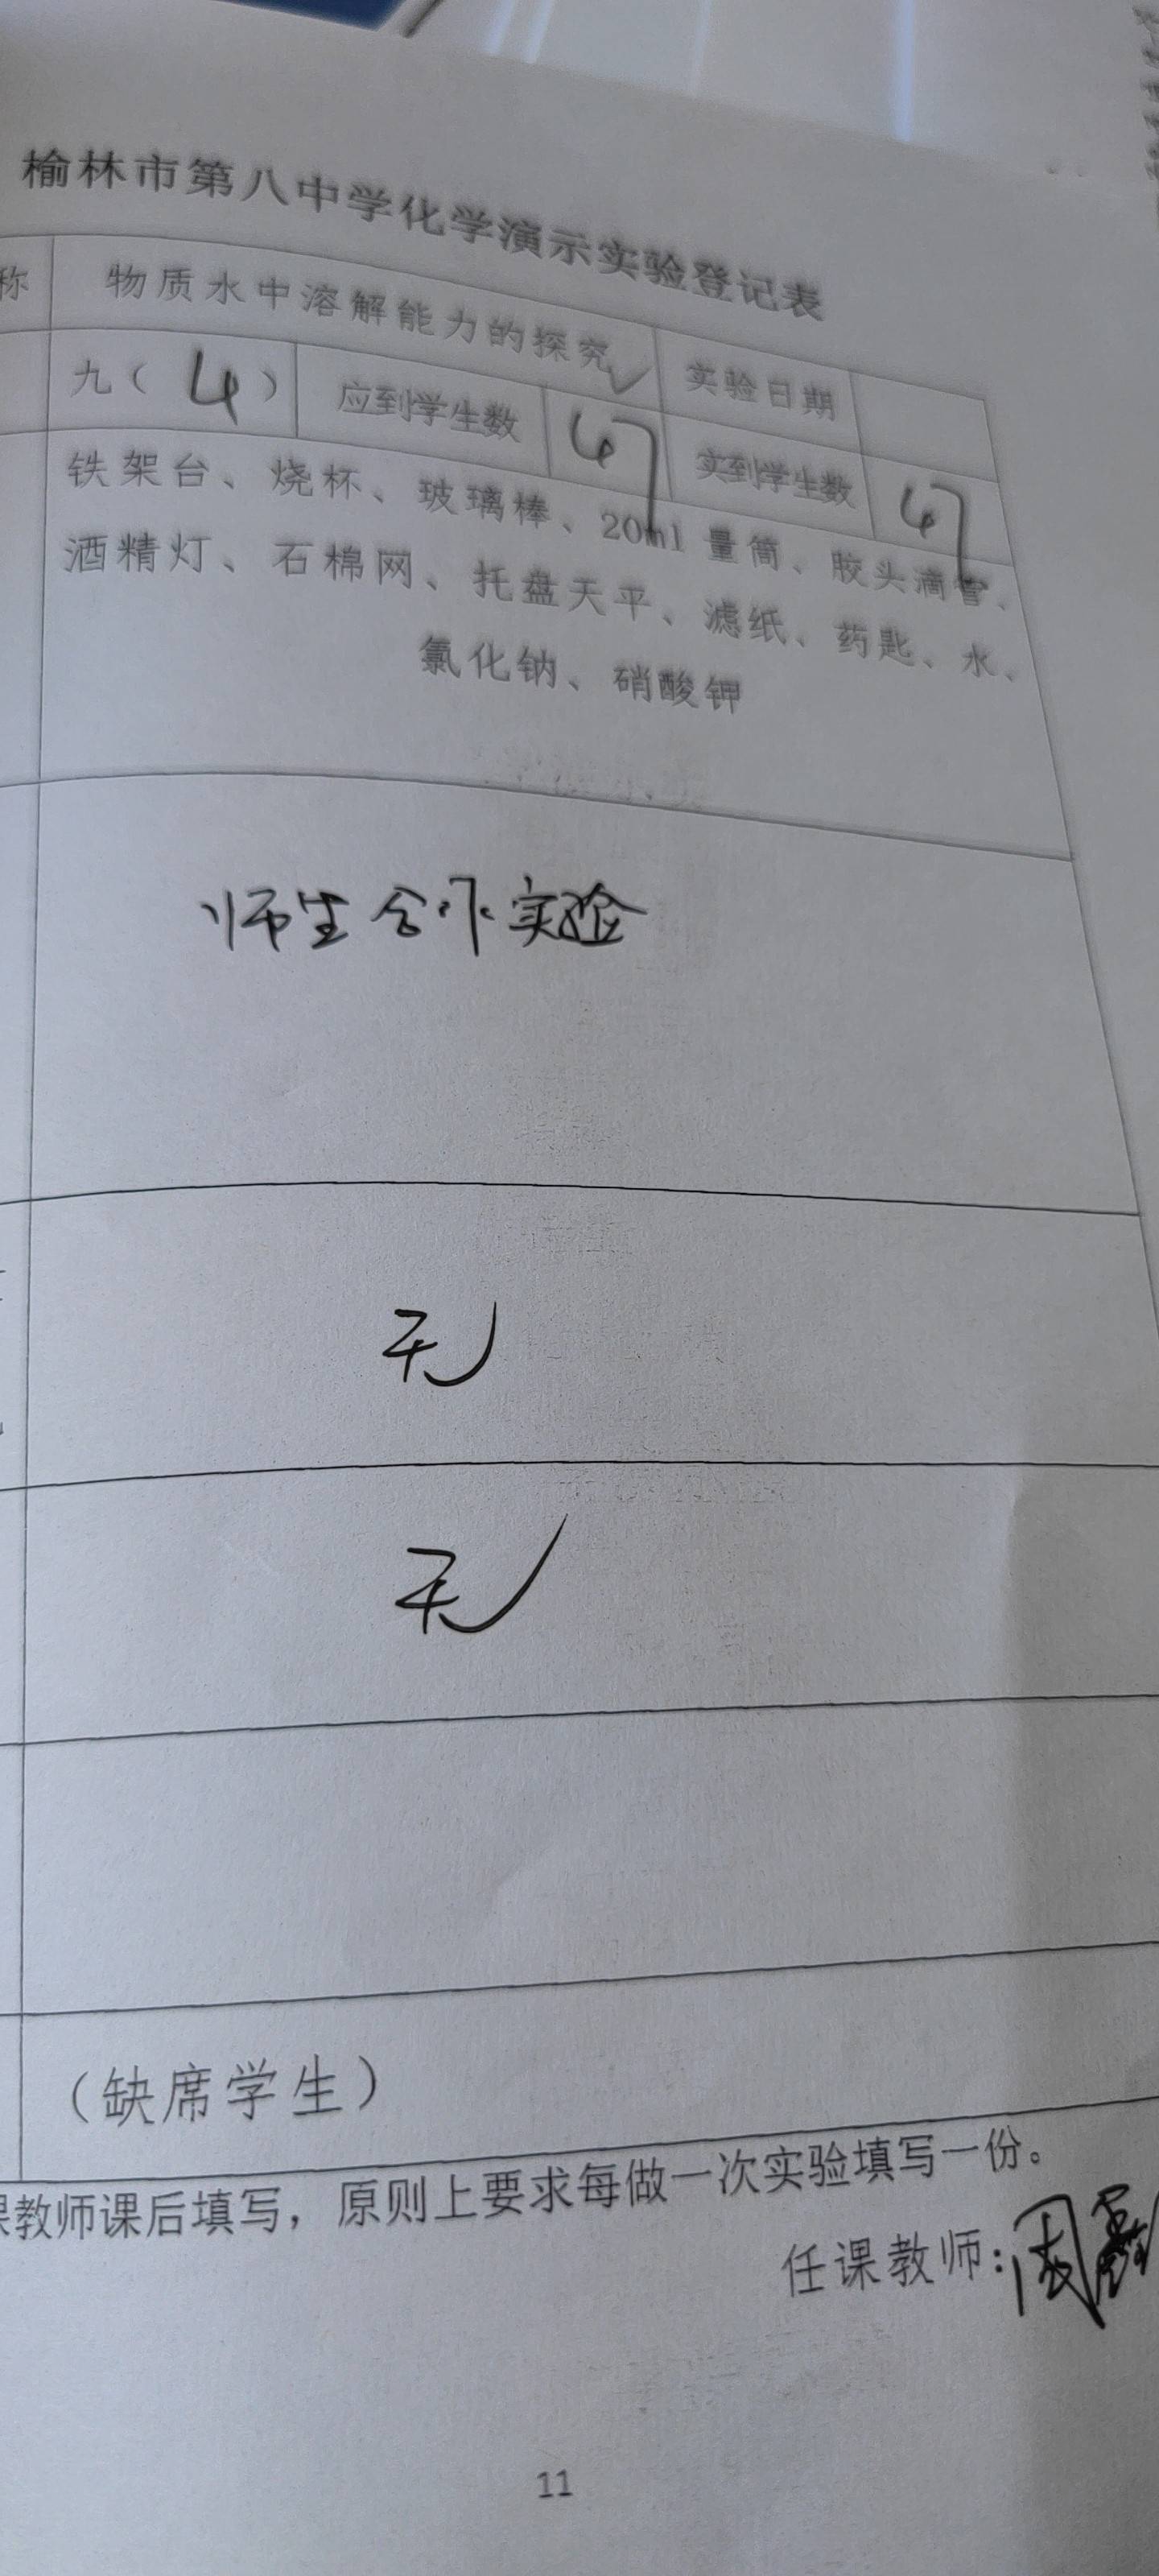 榆林市第八中学化学演示实验登记表
称 物质水中溶解能力的探究 ✓ 实验日期
九（ 4 ） 应到学生数 47 实到学生数 47
铁架台、烧杯、玻璃棒、20ml 量筒、胶头滴管、
酒精灯、石棉网、托盘天平、滤纸、药匙、水、
氯化钠、硝酸钾
师生合作实验
无
无
（缺席学生）
课教师课后填写，原则上要求每做一次实验填写一份。
任课教师：周
11